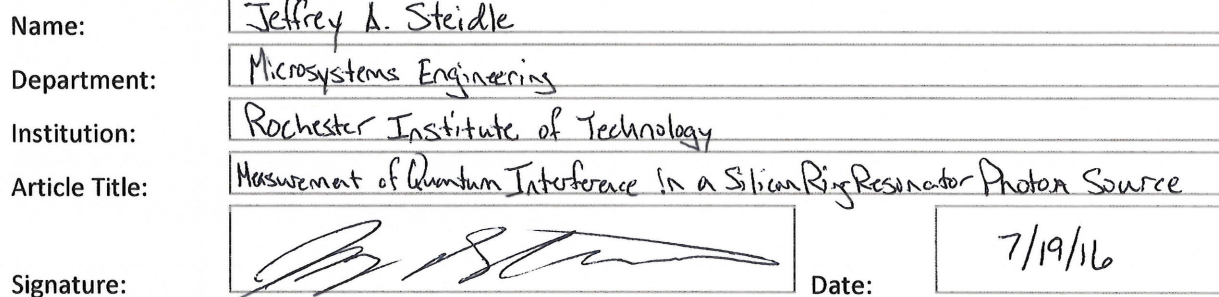 Name: Jeffrey A. Steidle
Department: Microsystems Engineering
Institution: Rochester Institute of Technology
Article Title: Measurement of Quantum Interference in a Silicon Ring Resonator Photon Source
Signature: Date: 7/19/16